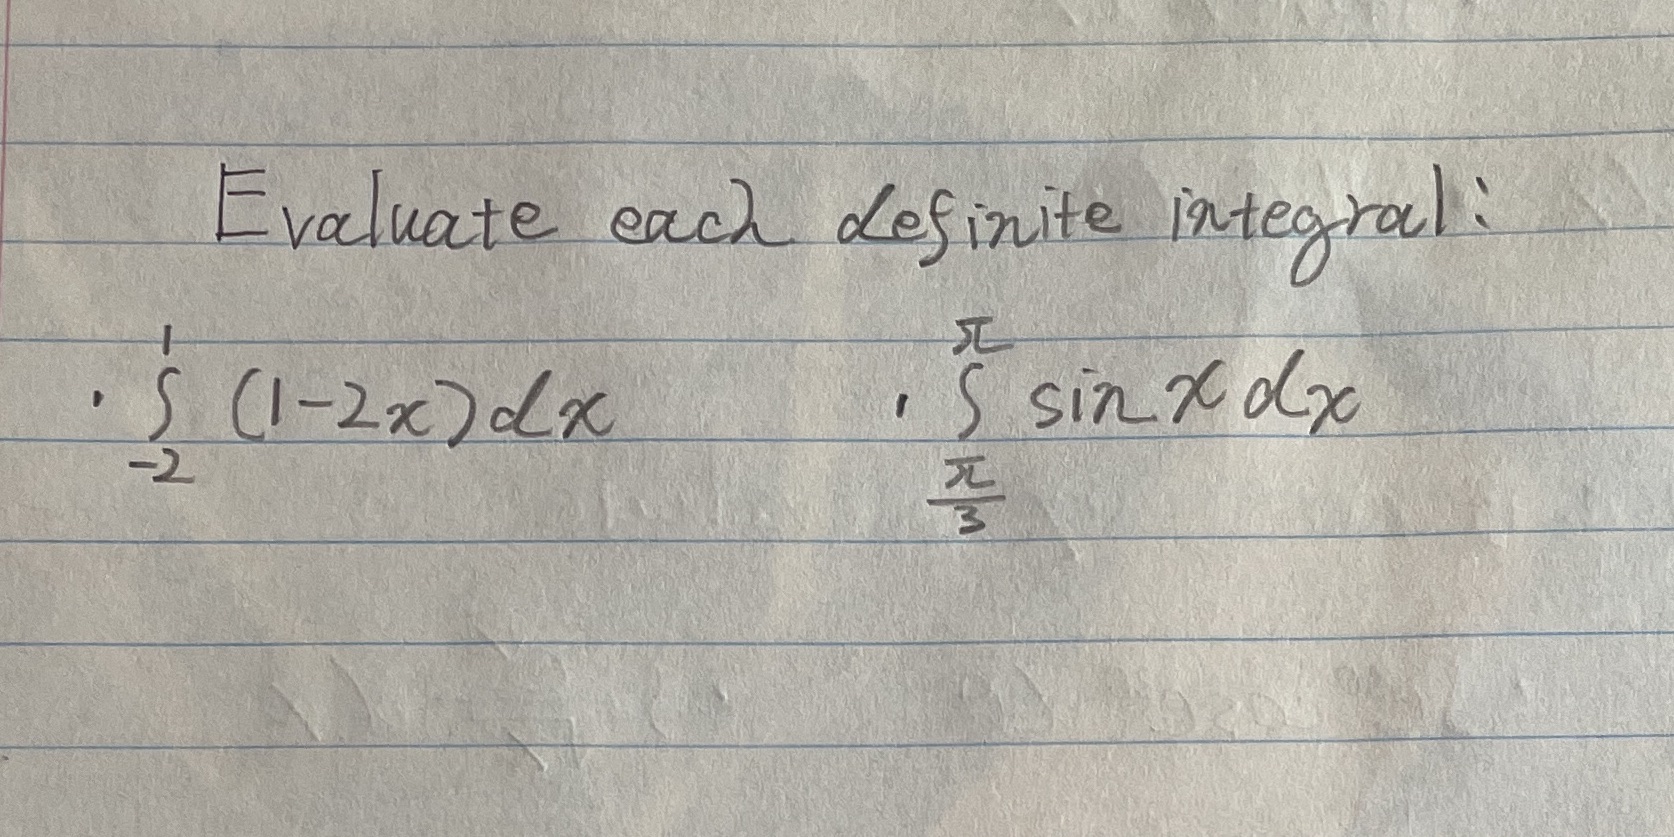 Evaluate each definite integral:
· ∫_{-2}^{1} (1-2x)dx · ∫_{π/3}^{π} sin x dx